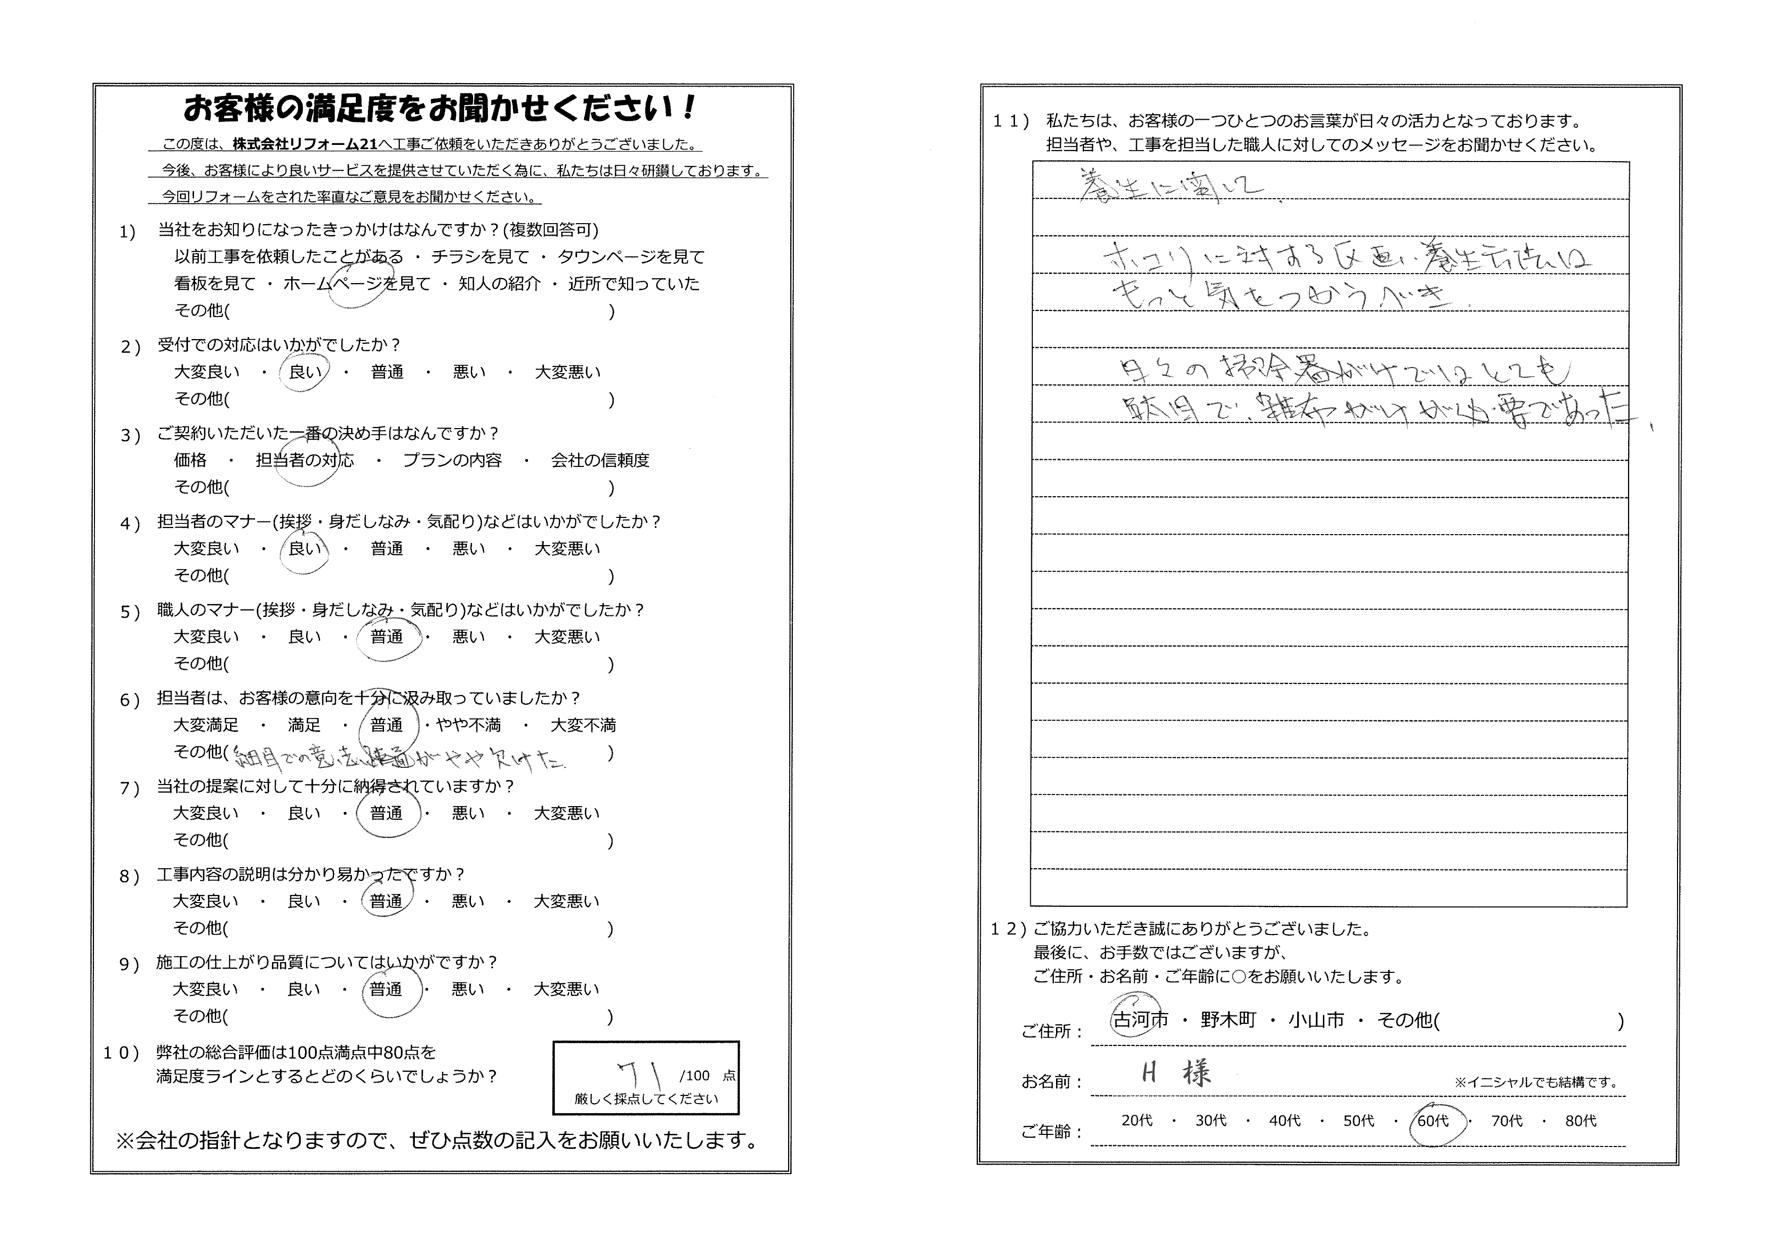 お客様の満足度をお聞かせください！
この度は、株式会社リフォーム21へ工事ご依頼をいただきありがとうございました。
今後、お客様により良いサービスを提供させていただく為に、私たちは日々研鑽しております。
今回リフォームをされた率直なご意見をお聞かせください。
1) 当社をお知りになったきっかけはなんですか？(複数回答可)
以前工事を依頼したことがある ・ チラシを見て ・ タウンページを見て
看板を見て ・ ホームページを見て ・ 知人の紹介 ・ 近所で知っていた
その他( )
2) 受付での対応はいかがでしたか？
大変良い ・ 良い ・ 普通 ・ 悪い ・ 大変悪い
その他( )
3) ご契約いただいた一番の決め手はなんですか？
価格 ・ 担当者の対応 ・ プランの内容 ・ 会社の信頼度
その他( )
4) 担当者のマナー(挨拶・身だしなみ・気配り)などはいかがでしたか？
大変良い ・ 良い ・ 普通 ・ 悪い ・ 大変悪い
その他( )
5) 職人のマナー(挨拶・身だしなみ・気配り)などはいかがでしたか？
大変良い ・ 良い ・ 普通 ・ 悪い ・ 大変悪い
その他( )
6) 担当者は、お客様の意向を十分に汲み取っていましたか？
大変満足 ・ 満足 ・ 普通 ・やや不満 ・ 大変不満
その他( 細目での意志疎通がやや欠けた. )
7) 当社の提案に対して十分に納得されていますか？
大変良い ・ 良い ・ 普通 ・ 悪い ・ 大変悪い
その他( )
8) 工事内容の説明は分かり易かったですか？
大変良い ・ 良い ・ 普通 ・ 悪い ・ 大変悪い
その他( )
9) 施工の仕上がり品質についてはいかがですか？
大変良い ・ 良い ・ 普通 ・ 悪い ・ 大変悪い
その他( )
10) 弊社の総合評価は100点満点中80点を
満足度ラインとするとどのくらいでしょうか？
71 /100 点
厳しく採点してください
※会社の指針となりますので、ぜひ点数の記入をお願いいたします。
11) 私たちは、お客様の一つひとつのお言葉が日々の活力となっております。
担当者や、工事を担当した職人に対してのメッセージをお聞かせください。
養生に関して、
ホコリに対する区画、養生方法は
もっと気をつかうべき.
日々の掃除器がけではとても
駄目で、雑布がけが必要であった、
12) ご協力いただき誠にありがとうございました。
最後に、お手数ではございますが、
ご住所・お名前・ご年齢に○をお願いいたします。
ご住所： 古河市 ・ 野木町 ・ 小山市 ・ その他( )
お名前： H 様 ※イニシャルでも結構です。
ご年齢： 20代 ・ 30代 ・ 40代 ・ 50代 ・ 60代 ・ 70代 ・ 80代